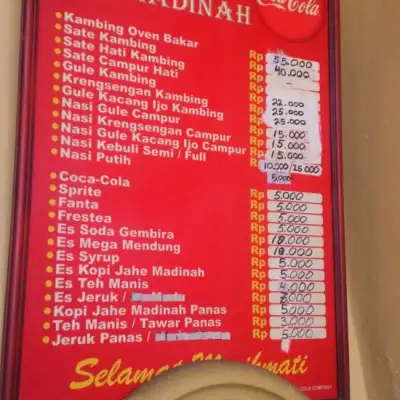 MADINAH
Coca-Cola
Kambing Oven Bakar Rp 55.000
Sate Kambing Rp 40.000
Sate Hati Kambing Rp -
Sate Campur Hati Rp -
Gule Kambing Rp 22.000
Krengsengan Kambing Rp 25.000
Gule Kacang Ijo Kambing Rp 25.000
Nasi Gule Campur Rp 15.000
Nasi Krengsengan Campur Rp 15.000
Nasi Gule Kacang Ijo Campur Rp 15.000
Nasi Kebuli Semi / Full Rp 10.000/25.000
Nasi Putih Rp 5.000
Coca-Cola Rp 5.000
Sprite Rp 5.000
Fanta Rp 5.000
Frestea Rp 5.000
Es Soda Gembira Rp 10.000
Es Mega Mendung Rp 10.000
Es Syrup Rp 5.000
Es Kopi Jahe Madinah Rp 5.000
Es Teh Manis Rp 4.000
Es Jeruk / Rp
Kopi Jahe Madinah Panas Rp 5.000
Teh Manis / Tawar Panas Rp 3.000
Jeruk Panas / Rp 5.000
Selamat